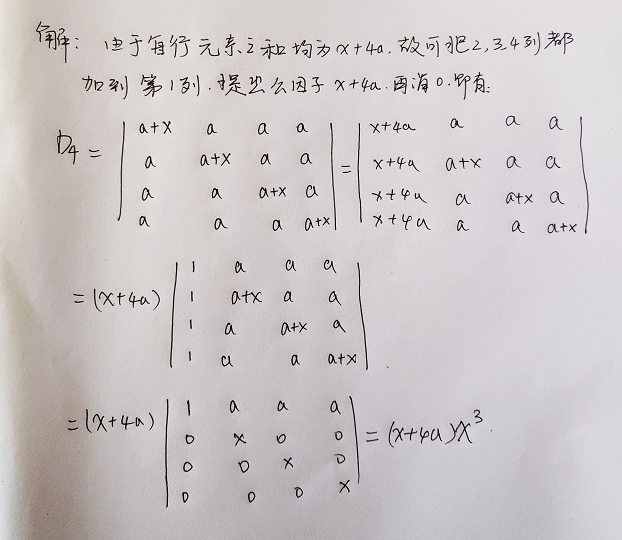 解: 由于每行元素之和均为x+4a.故可把2,3,4列都
加到第1列.提出公因子x+4a.再消0.即有:
D₄ = | a+x a a a | = | x+4a a a a |
| a a+x a a | | x+4a a+x a a |
| a a a+x a | | x+4a a a+x a |
| a a a a+x | | x+4a a a a+x |
=(x+4a) | 1 a a a |
| 1 a+x a a |
| 1 a a+x a |
| 1 a a a+x |.
=(x+4a) | 1 a a a | =(x+4a)x³.
| 0 x 0 0 |
| 0 0 x 0 |
| 0 0 0 x |